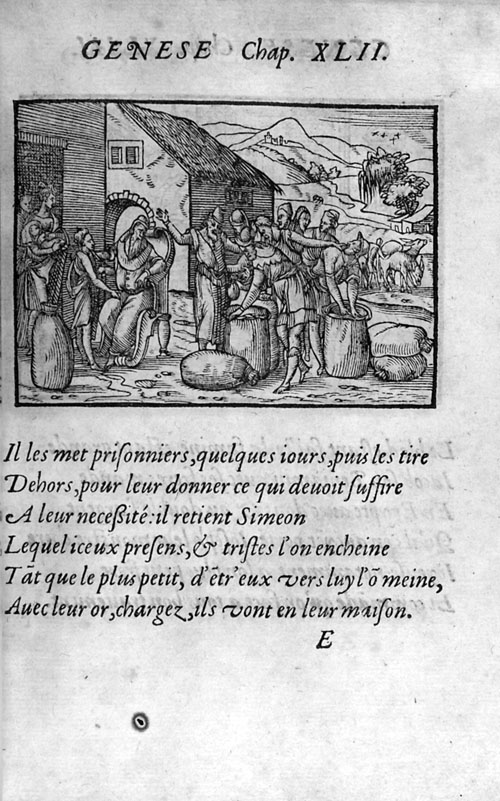 GENESE Chap. XLII.
Il les met priſonniers, quelques iours, puis les tire
Dehors, pour leur donner ce qui devoit ſuffire
A leur neceßité: il retient Simeon
Lequel iceux preſens, & triſtes l'on encheine
Tãt que le plus petit, d'ẽtr'eux vers luy l'õ meine,
Avec leur or, chargez, ils vont en leur maiſon.
E